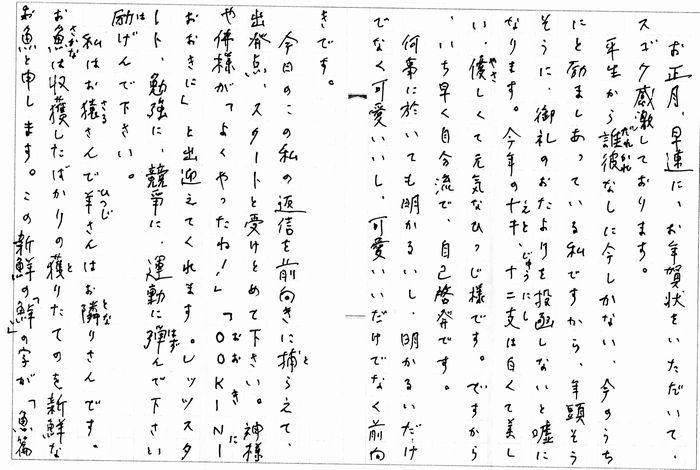 お正月、早速に、お年賀状をいただいて、
スゴク感激しております。
平生から誰彼なしに今しかない、今のうち
にと励ましあっている私ですから、年頭そう
そうに、御礼のおたよりを投函しないと嘘に
なります。今年の十干、十二支は白くて美し
い、優しくて元気なひつじ様です。ですから
、いち早く自分流で、自己啓発です。
何事に於いても明かるいし、明かるいだけ
でなく可愛いいし、可愛いいだけでなく前向
きです。
今日のこの私の返信を前向きに捕らえて、
出発点、スタートと受けとめて下さい。神様
や佛様がってよくやったね!」「OOKINI
おおきに」と出迎えてくれます。レッツスタ
ート、勉強に、競争に、運動に弾んで下さい
励げんで下さい。
私はお猿さんで羊さんはお隣りさんです。
お魚は収獲したばかりの獲りたてのを新鮮な
お魚と申します。この新鮮の「鮮」の字が「魚篇